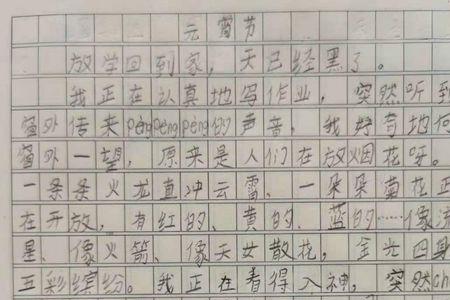 元宵节
放学回到家，天已经黑了。
我正在认真地写作业，突然听到
窗外传来pengpengpeng的声音，我好奇地向
窗外一望，原来是人们在放烟花呀。
一条条火龙直冲云霄、一朵朵菊花正
在开放，有红的、黄的、蓝的……像流
星、像火箭、像天女散花，金光四身
五彩缤纷。我正在看得入神，突然ch